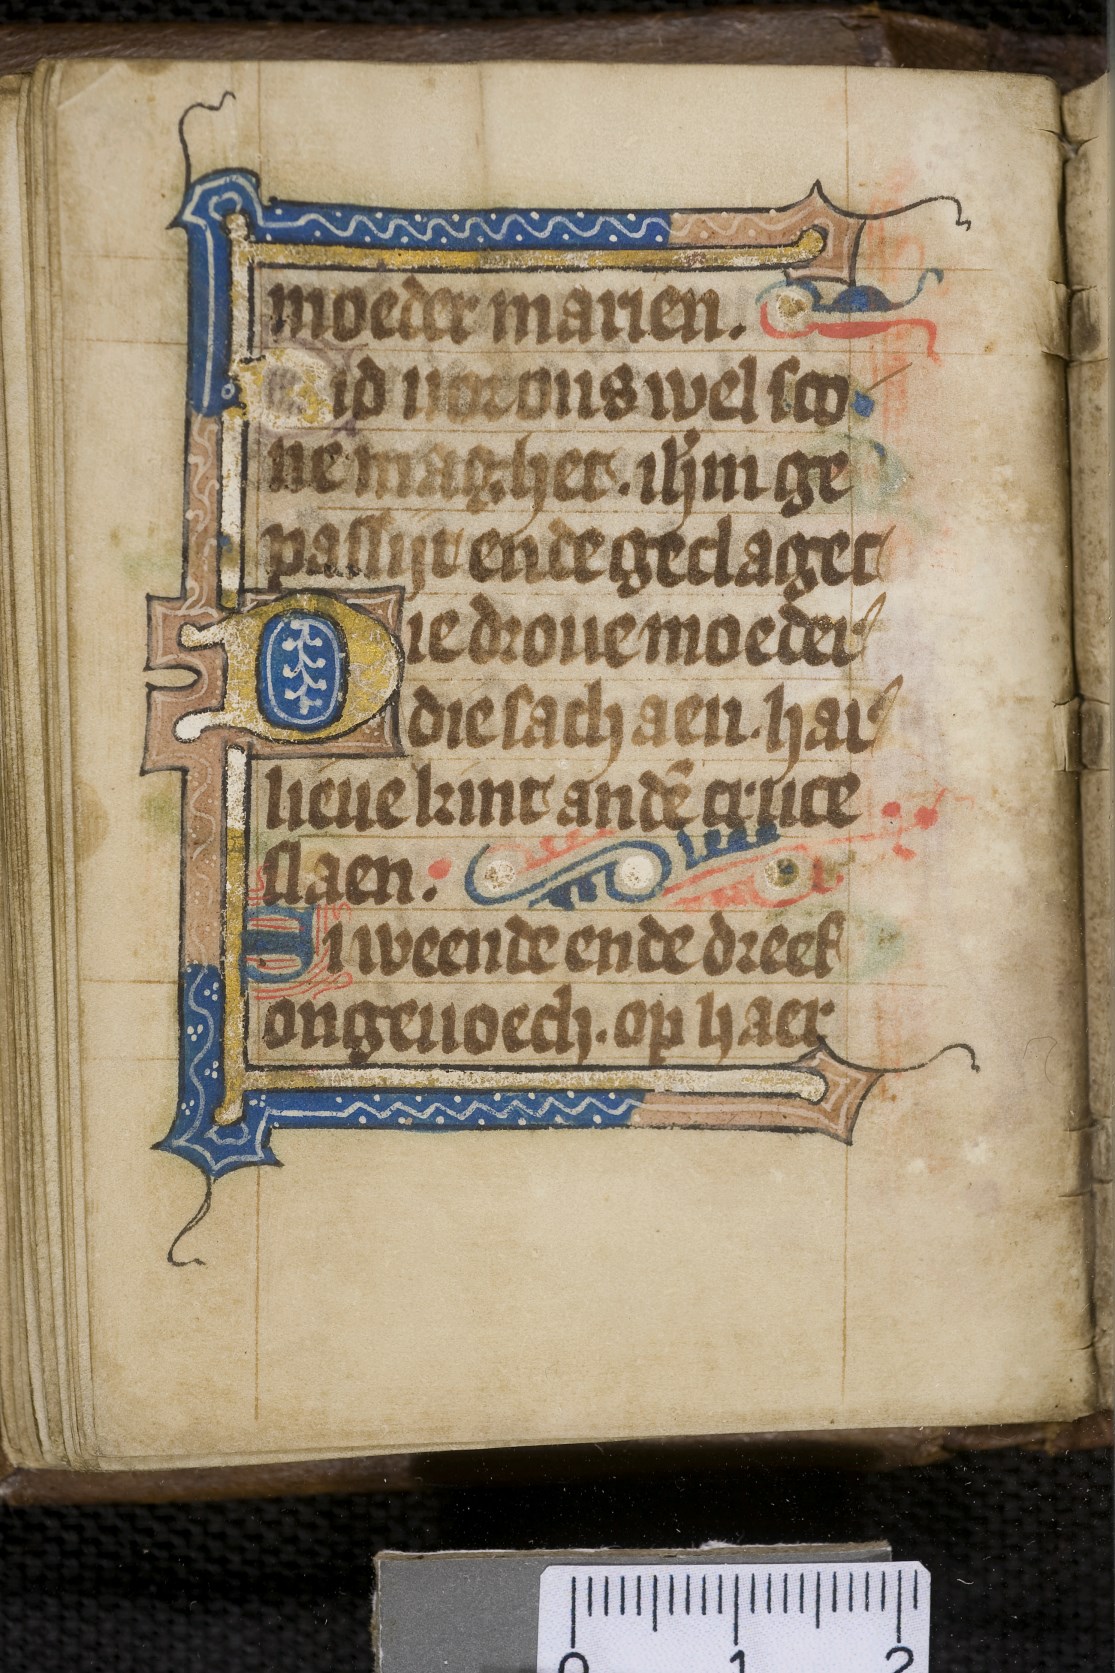 moeder marien.
Bid uor ons wel sco
ne maghet. ih̄m ge
passijt ende geclaget
Die droue moeder
die sach aen. hair
lieue kint an dē cruce
slaen.
Si weende ende dreef
ongeuoech. op haer
0 1 2